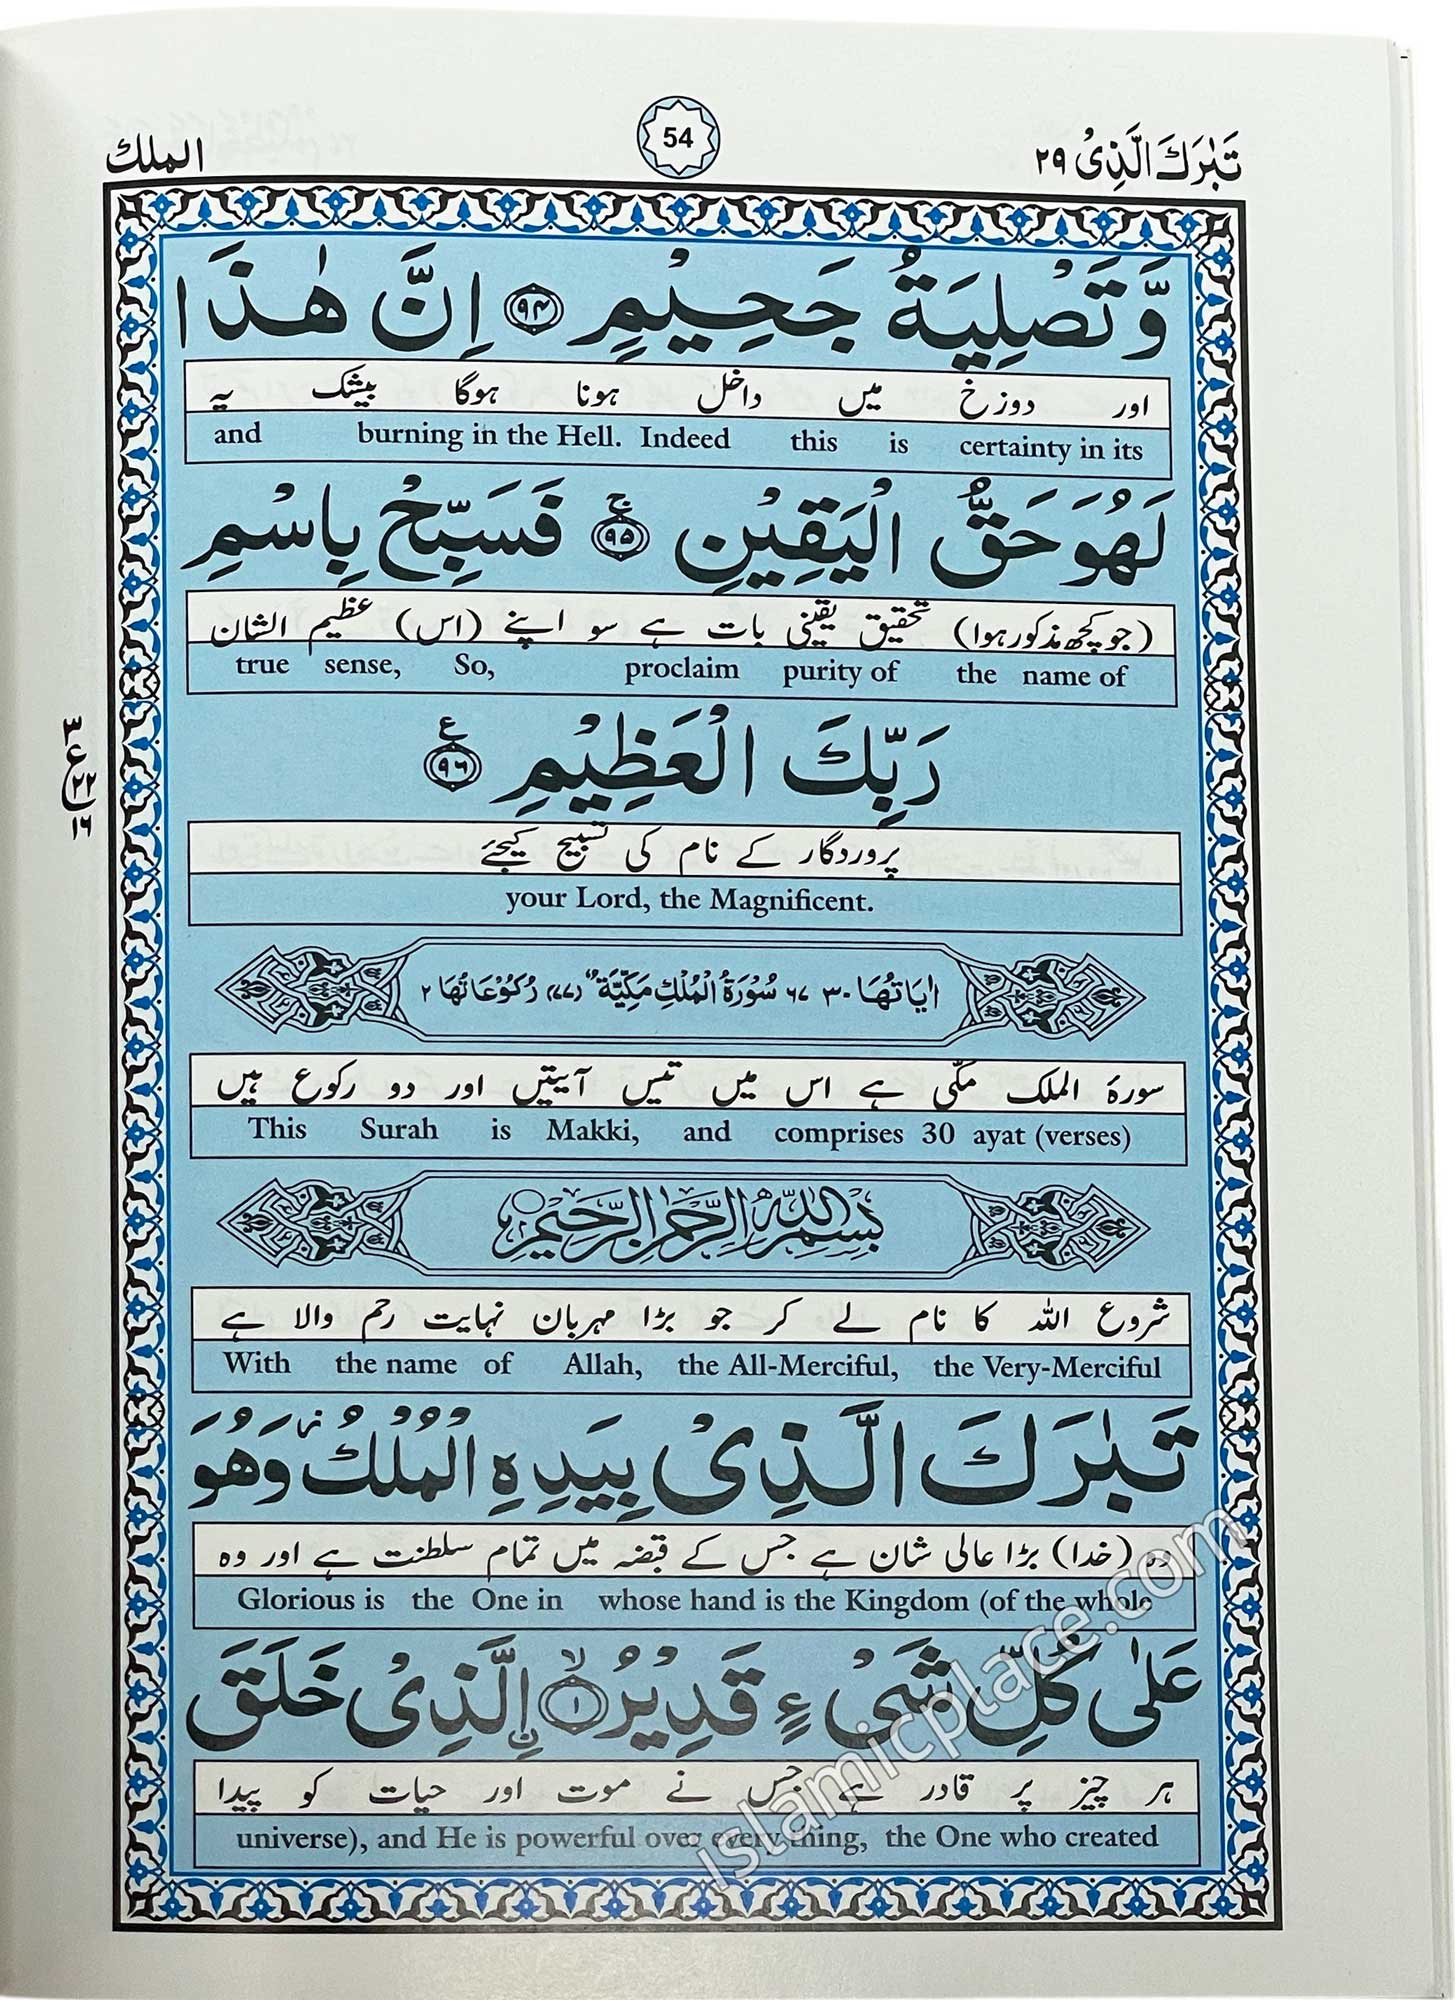 تَبٰرَكَ الَّذِیْ ۲۹
54
الملك
وَّتَصْلِیَةُ جَحِیْمٍ ﴿۹۴﴾ اِنَّ هٰذَا
اور دوزخ میں داخل ہونا ہوگا بیشک یہ
and burning in the Hell. Indeed this is certainty in its
لَهُوَ حَقُّ الْیَقِیْنِ ﴿۹۵﴾ ج فَسَبِّحْ بِاسْمِ
(جو کچھ مذکور ہوا) تحقیق یقینی بات ہے سو اپنے (اس) عظیم الشان
true sense, So, proclaim purity of the name of
رَبِّكَ الْعَظِیْمِ ﴿۹۶﴾ ع
۳
ع
۲۲
۱۶
پروردگار کے نام کی تسبیح کیجئے
your Lord, the Magnificent.
اٰیَاتُهَا ۳۰ ۶۷ سُوْرَةُ الْمُلْكِ مَكِّیَّةٌ (۷۷) رُكُوْعَاتُهَا ۲
سورۂ الملک مکّی ہے اس میں تیس آیتیں اور دو رکوع ہیں
This Surah is Makki, and comprises 30 ayat (verses)
بسم الله الرحمن الرحيم
شروع اللہ کا نام لے کر جو بڑا مہربان نہایت رحم والا ہے
With the name of Allah, the All-Merciful, the Very-Merciful
تَبٰرَكَ الَّذِیْ بِیَدِهِ الْمُلْكُ ز وَهُوَ
وہ (خدا) بڑا عالی شان ہے جس کے قبضہ میں تمام سلطنت ہے اور وہ
Glorious is the One in whose hand is the Kingdom (of the whole
عَلٰی كُلِّ شَیْءٍ قَدِیْرُ ﴿۱﴾ لا ِۨالَّذِیْ خَلَقَ
ہر چیز پر قادر ہے جس نے موت اور حیات کو پیدا
universe), and He is powerful over every thing, the One who created
islamicplace.com